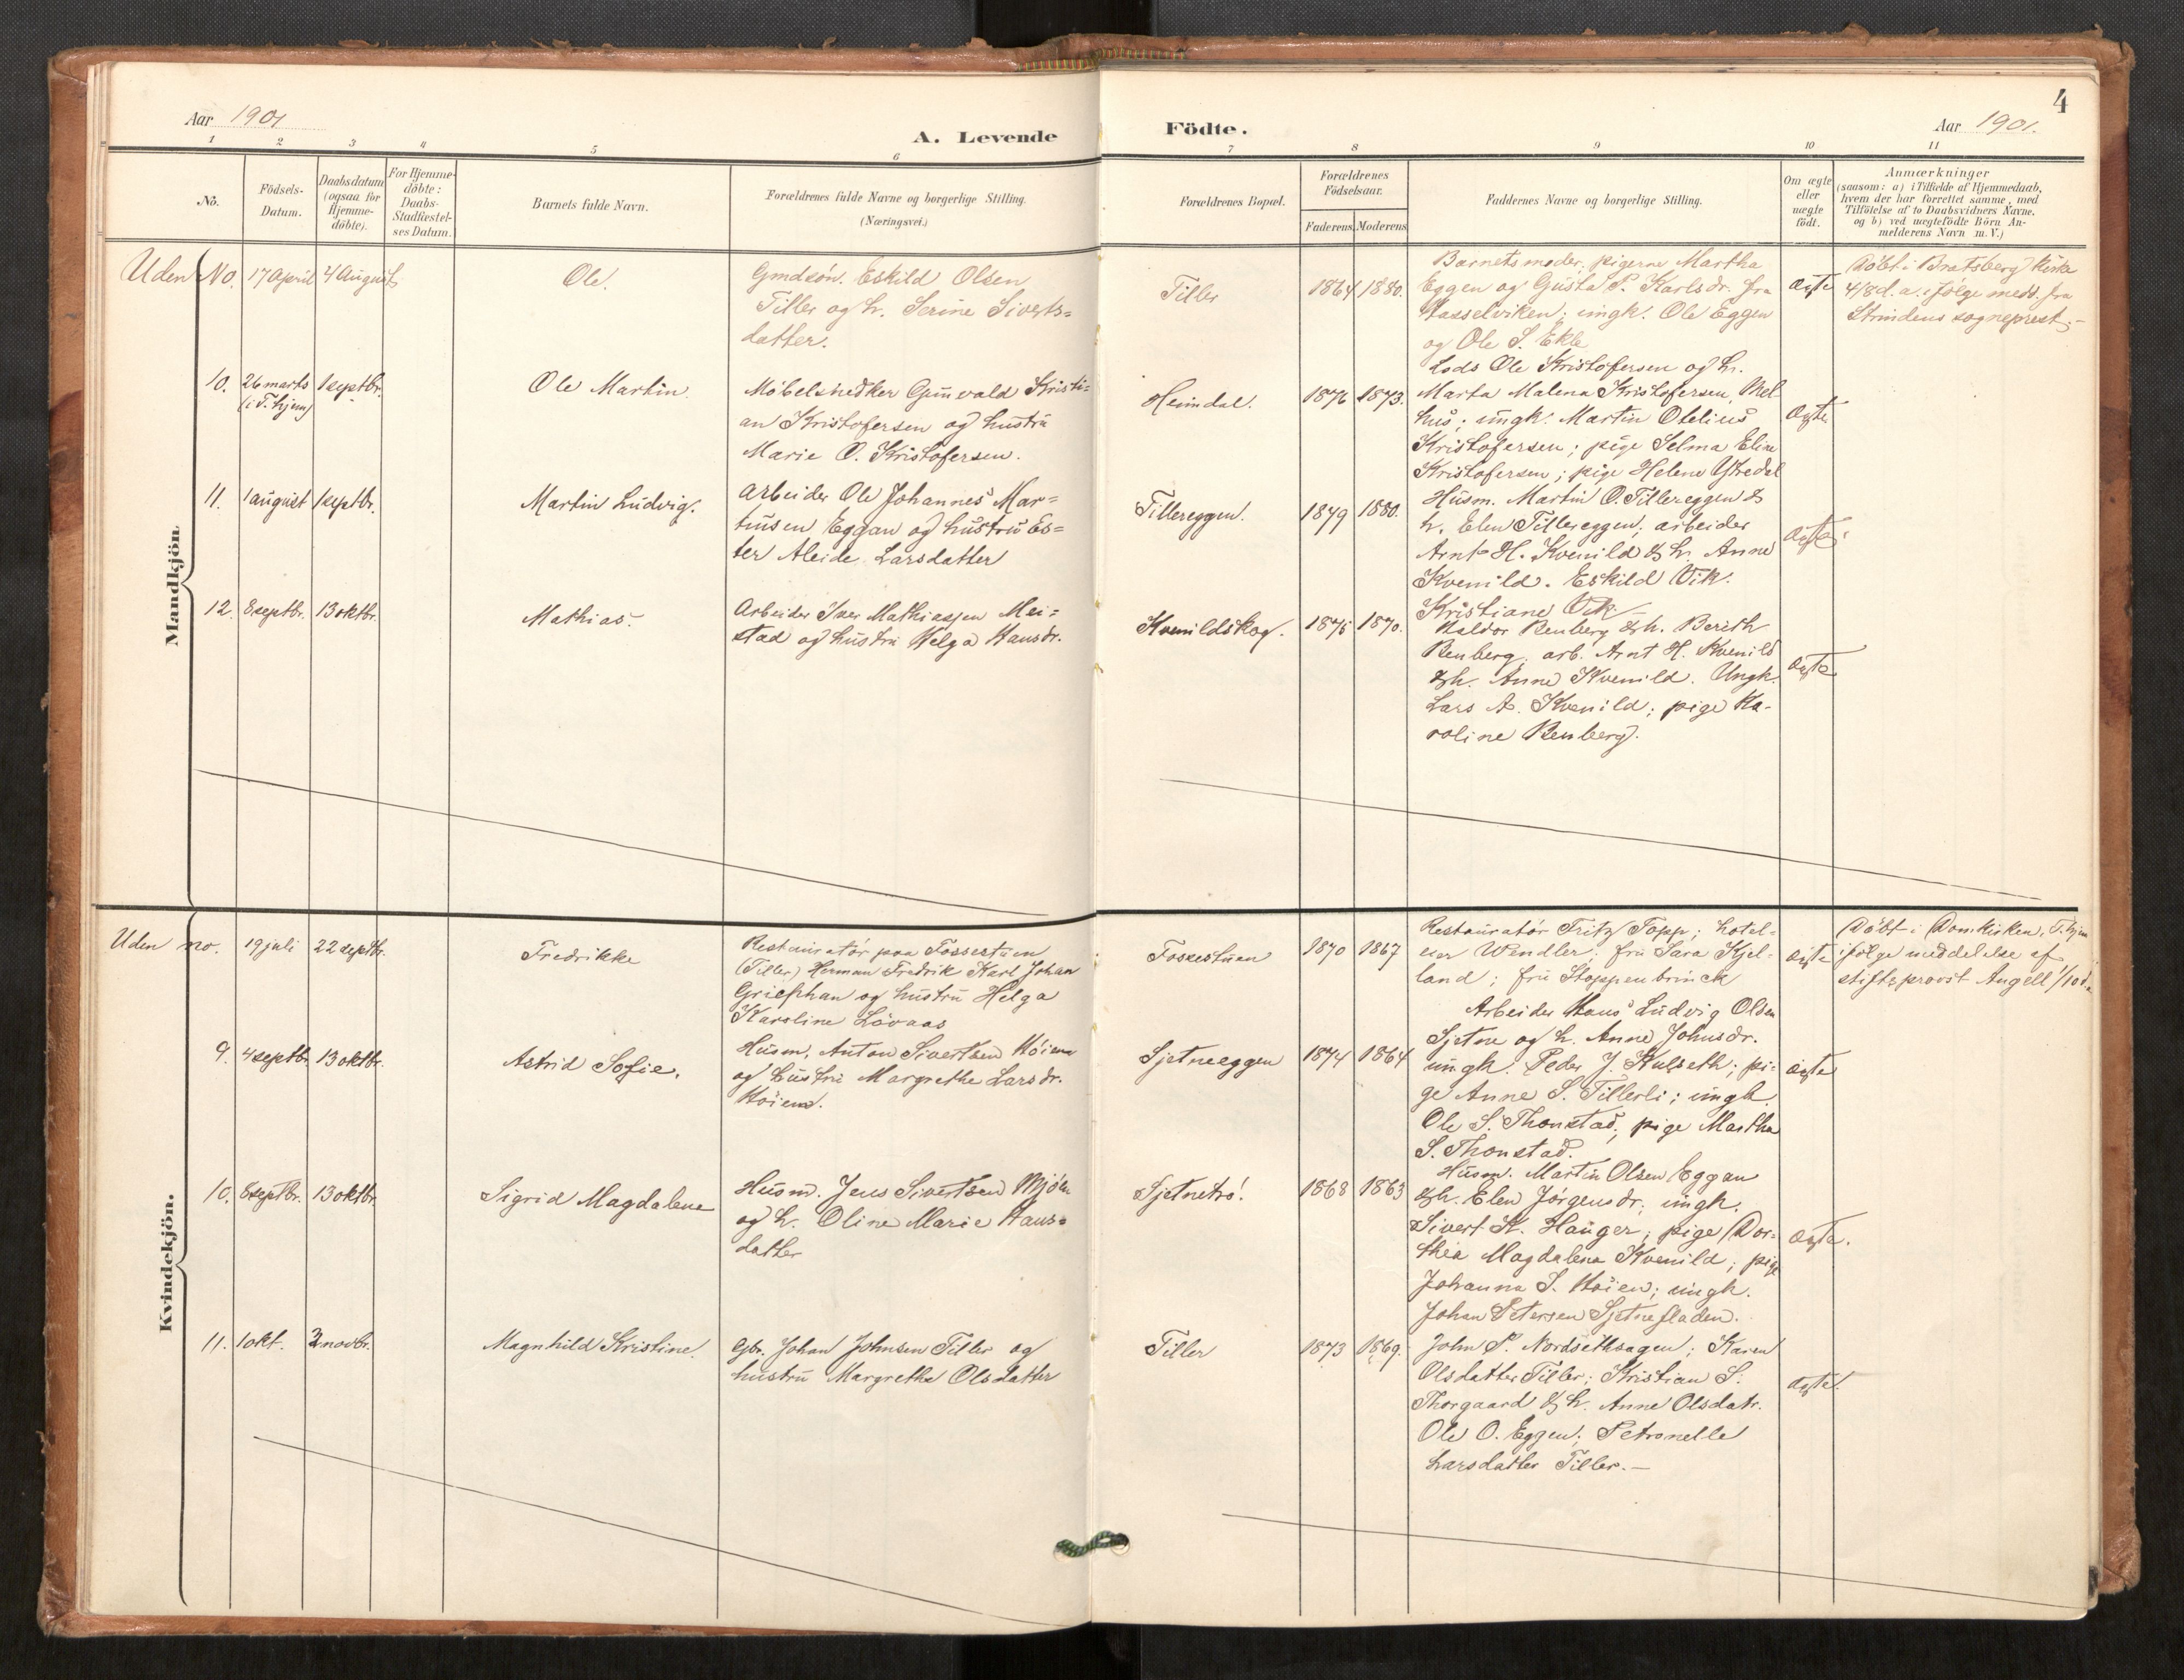 4
Aar 1901
A. Levende
Födte.
Aar 1901.
1 2 3 4 5 6 7 8 9 10 11
No.
Födsels-
Datum.
Daabsdatum
(ogsaa for
Hjemme-
döbte).
For Hjemme-
döbte:
Daabs-
Stadfæstel-
ses Datum.
Barnets fulde Navn.
Forældrenes fulde Navne og borgerlige Stilling.
(Næringsvei.)
Forældrenes Bopæl.
Forældrenes
Födselsaar.
Faderens. Moderens.
Faddernes Navne og borgerlige Stilling.
Om ægte
eller
uægte
födt.
Anmærkninger
(saasom: a) i Tilfælde af Hjemmedaab,
hvem der har forrettet samme, med
Tilföielse af to Daabsvidners Navne.
og b) ved uægtefödte Börn An-
melderens Navn m. V.)
Mandkjön.
Uden No. 17 april 4 August
Ole.
Gmdsön. Eskild Olsen
Tiller og h. Serine Siverts=
datter.
Tiller
1864 1880.
Barnets moder, pigerne Martha
Eggen og Gusta P. Karlsdr. fra
Hasselviken; ungk. Ole Eggen
og Ole S. Ekle
ægte
Döbt i Bratsberg kirke
4/8 d. a. ifölge medd. fra
Strindens sogneprest.-
10. 26 marts 1 septbr.
(i T.hjem)
Ole Martin.
Möbelsnedker Gunvald Kristi=
an Kristofersen og hustru
Marie O. Kristofersen.
Heimdal.
1876 1873.
Lods Ole Kristofersen og h.
Marta Malena Kristofersen, Mel
hus; ungk. Martin Otelius
Kristofersen; pige Selma Eline
Kristofersen; pige Helene Ystedal
ægte
11. 1 august 1 septbr.
Martin Ludvig.
Arbeider Ole Johannes Mar=
tinsen Eggan og hustru Es=
ter Aleide Larsdatter
Tillereggen.
1879 1880.
Husm. Martin O. Tillereggen &
h. Elen Tillereggen; arbeider
Arnt H. Kvenild & h. Anne
Kvenild. Eskild Vik.
Kristiane Vik
ægte
12. 8 septbr. 13 oktbr.
Mathias.
Arbeider Iver Mathiassen Mei=
stad og hustru Helga Hansdr.
Kvenildskog.
1875 1870.
Haldor Renberg & h. Berith
Renberg; arb. Arnt H. Kvenild
& h. Anne Kvenild. Ungk.
Lars A. Kvenild; pige Ka-
roline Renberg.
ægte
Kvindekjön.
Uden no. 19 juli 22 septbr.
Fredrikke
Restauratör paa Fossestuen
(Tiller) Herman Fredrik Karl Johan
Griephan og hustru Helga
Karoline Lövaas
Fossestuen
1870 1867
Restauratör Fritz Topp; hotel-
eier Wendler; fru Sara Kjel-
land; fru Stoppenbrinck
ægte
Döbt i Domkirken, T.hjem
ifölge meddelelse af
stiftsprovst Angell 1/10 d.a.
9. 4 septbr. 13 oktbr.
Astrid Sofie.
Husm. Anton Sivertsen Höien
og hustru Margrethe Larsdr.
Höien.
Sjetneeggen
1874 1864
Arbeider Hans Ludvig Olsen
Sjetne og h. Anne Johnsdr.
ungk. Peder J. Hulseth; pi-
ge Anne S. Tillerli; ungk.
Ole S. Thonstad; pige Martha
S. Thonstad.
ægte
10. 8 septbr. 13 oktbr.
Sigrid Magdalene
Husm. Jens Sivertsen Mjöen
og h. Oline Marie Hans=
datter
Sjetnetrö.
1868 1863
Husm. Martin Olsen Eggan
& h. Elen Jörgensdr; ungk.
Sivert K. Hauger; pige Dor-
thea Magdalena Kvenild; pige
Johanna S. Höien; ungk.
Johan Petersen Sjetnefladen.
ægte.
11. 1 okt. 3 novbr.
Magnhild Kristine.
Gbr. Johan Johnsen Tiller og
hustru Margrethe Olsdatter
Tiller
1873 1869.
John P. Nordsethsagen; Karen
Olsdatter Tiller; Kristian S.
Thorgaard & h. Anne Olsdatr.
Ole O. Eggen; Petronelle
Larsdatter Tiller.-
ægte.